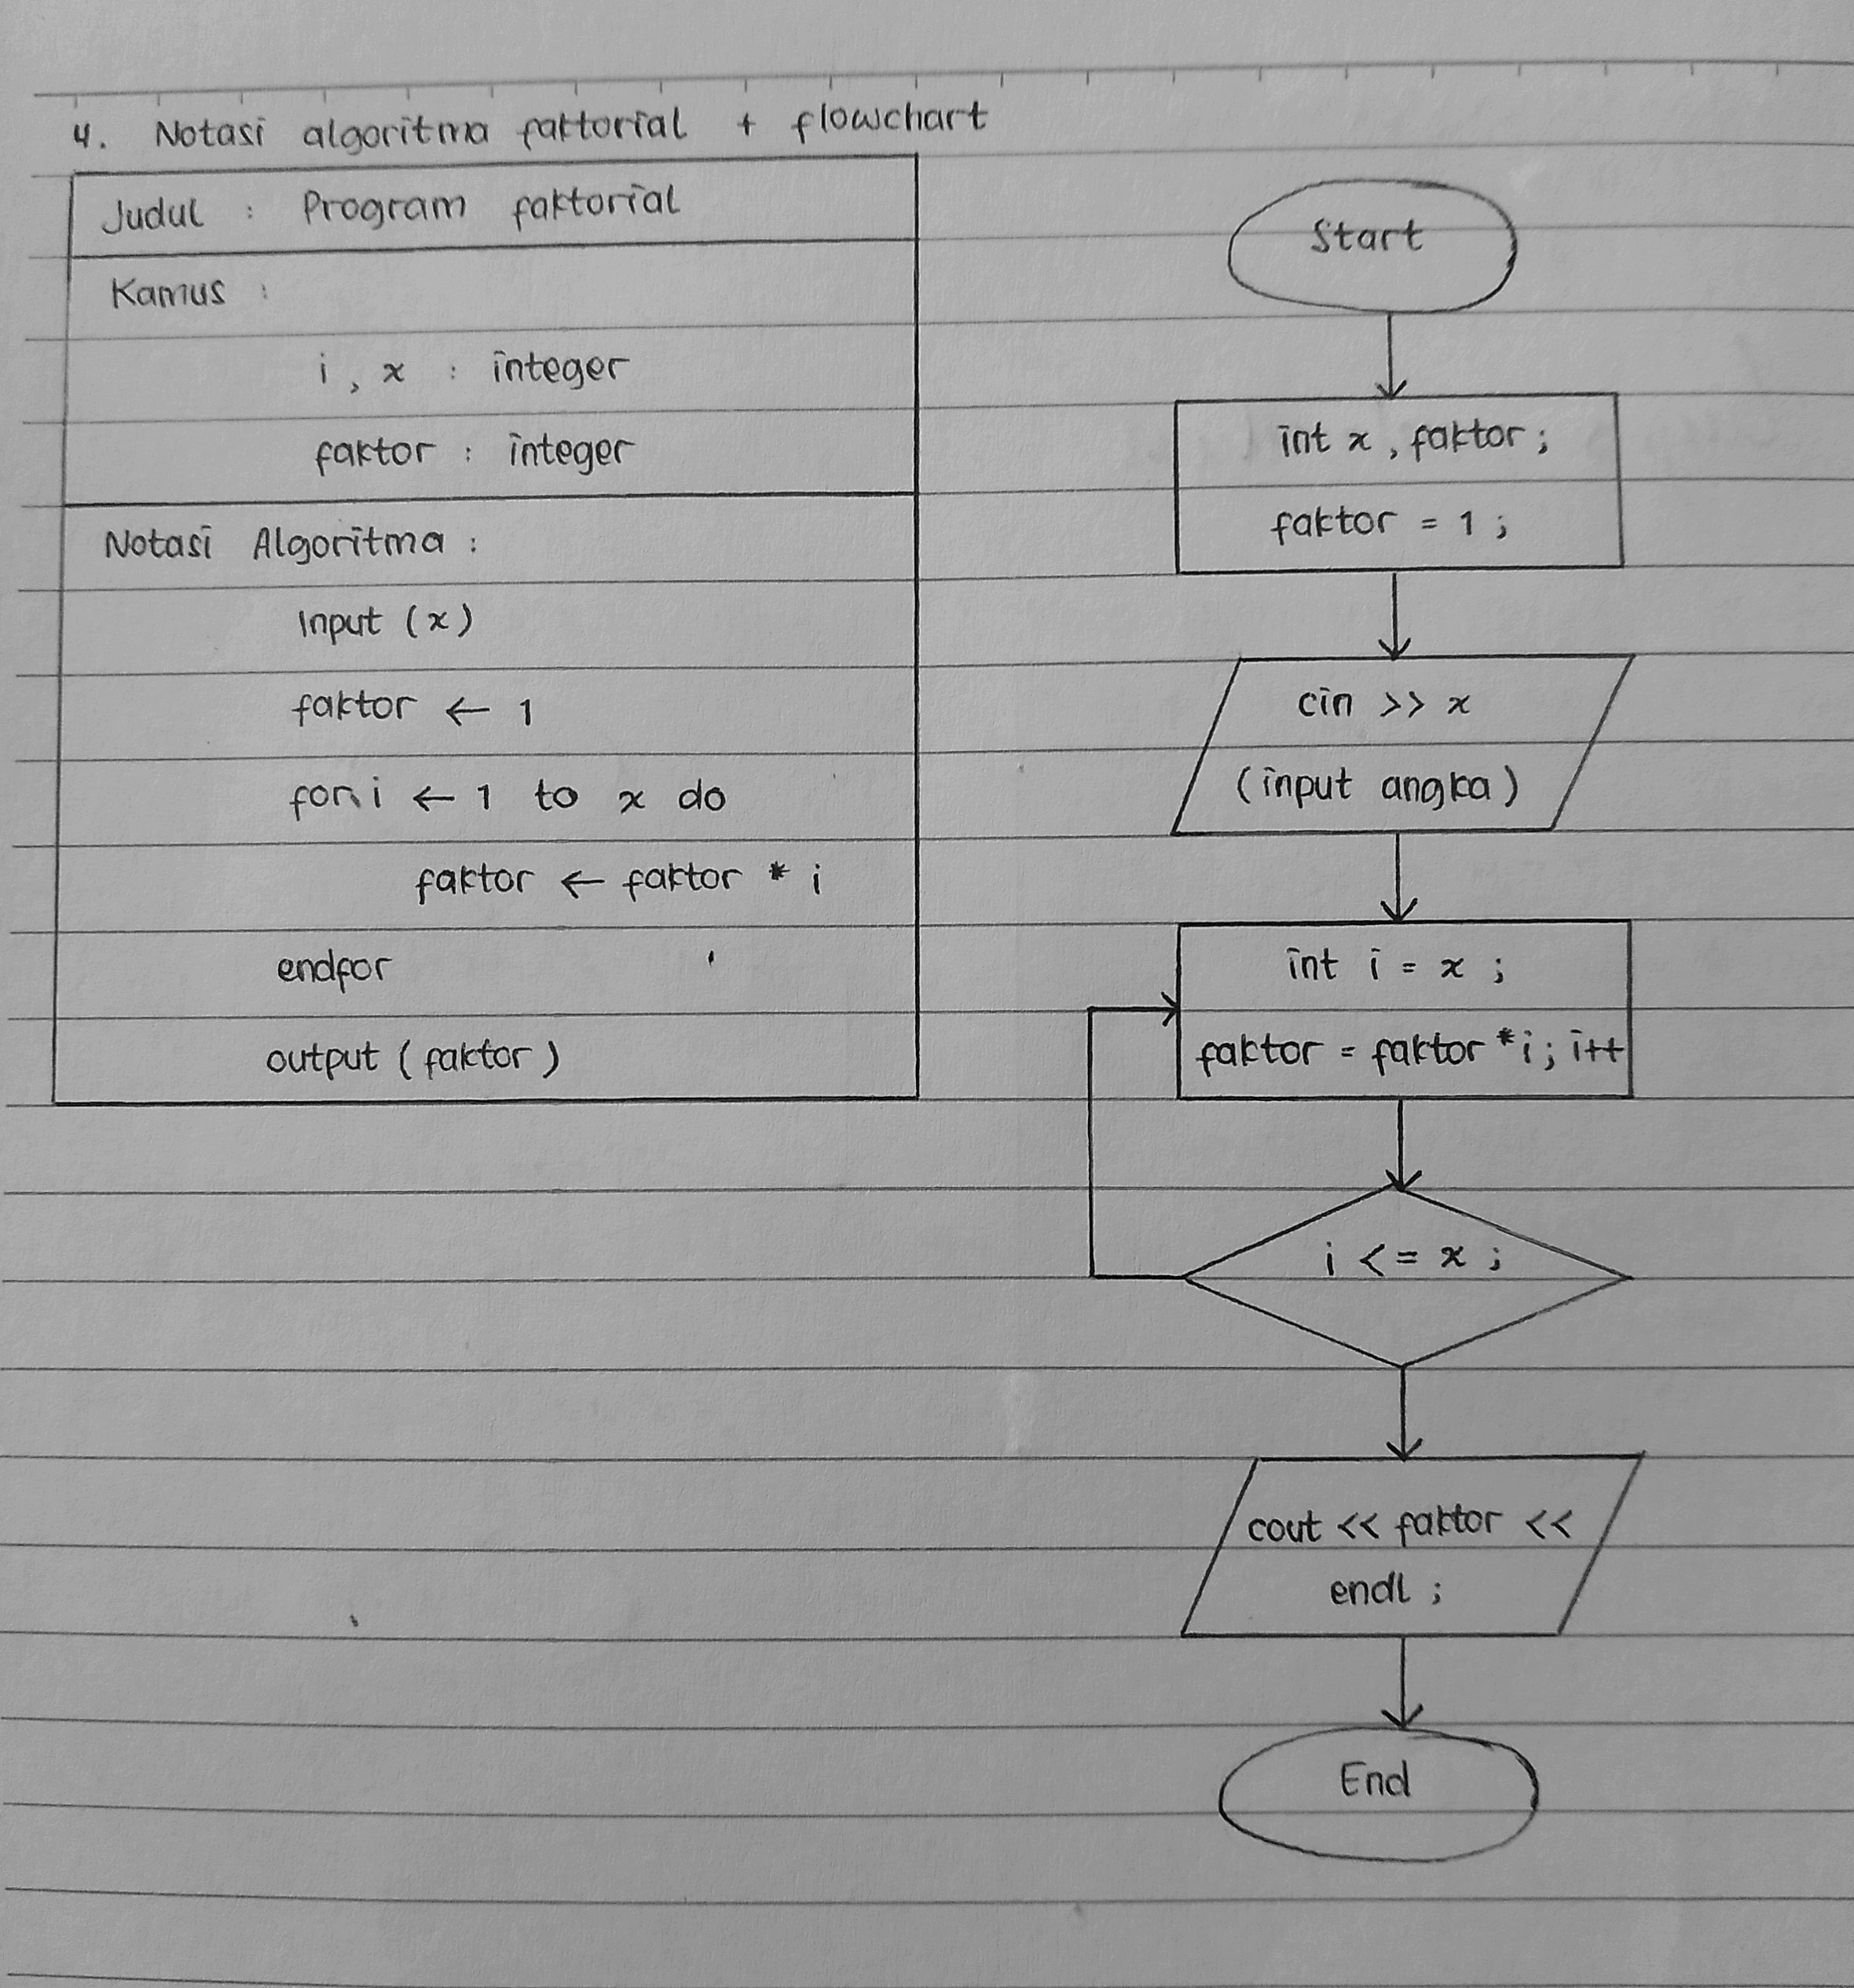 4. Notasi algoritma faktorial + flowchart
Judul : Program faktorial
Kamus :
i , x : integer
faktor : integer
Notasi Algoritma :
Input (x)
faktor ← 1
for i ← 1 to x do
faktor ← faktor * i
endfor
output ( faktor )
Start
int x , faktor ;
faktor = 1 ;
cin >> x
(input angka)
int i = x ;
faktor = faktor * i ; i++
i <= x ;
cout << faktor <<
endl ;
End